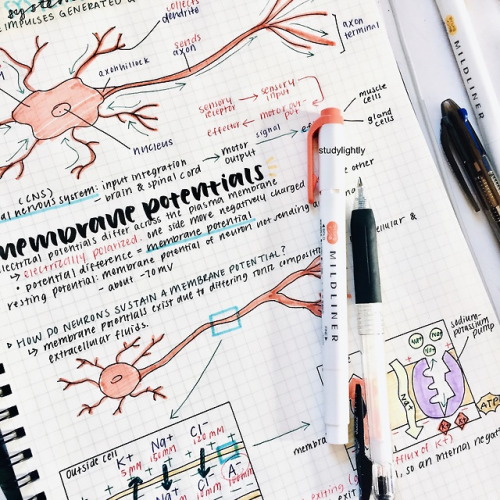 syste
IMPULSES GENERATED
collects
dendrite
axon
terminal
sends
axon
axonhillock
nucleus
sensory receptor → sensory input
effector ← motor output
muscle cells
gland cells
motor output
signal
(CNS)
al nervous system: input integration
brain & spinal cord
studylightly
membrane potentials
electrical potentials differ across the plasma membrane
↳ electrically polarized: one side more negatively charged
other
• potential difference = membrane potential
resting potential: membrane potential of neuron not sending
- about -70mV
&
▷ HOW DO NEURONS SUSTAIN A MEMBRANE POTENTIAL?
↳ membrane potentials exist due to differing ionic
extracellular fluids.
MILDLINER
MILDLINER
sodium-
potassium
pump
Na+
Na+
Na+
Na+
K+
K+
ATP
Outside cell
K+ Na+ Cl-
5 mM 150mM 120 mM
A-
membr
flux of K+)
, so an internal negat
exiting
exit